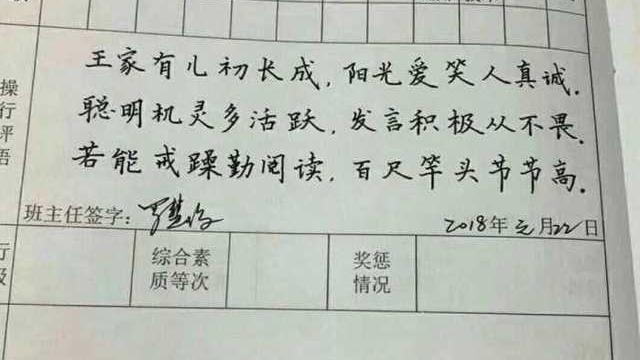 操行评语
王家有儿初长成,阳光爱笑人真诚.
聪明机灵多活跃,发言积极从不畏.
若能戒躁勤阅读,百尺竿头节节高.
班主任签字: 2018年元月22日
综合素质等次
奖惩情况